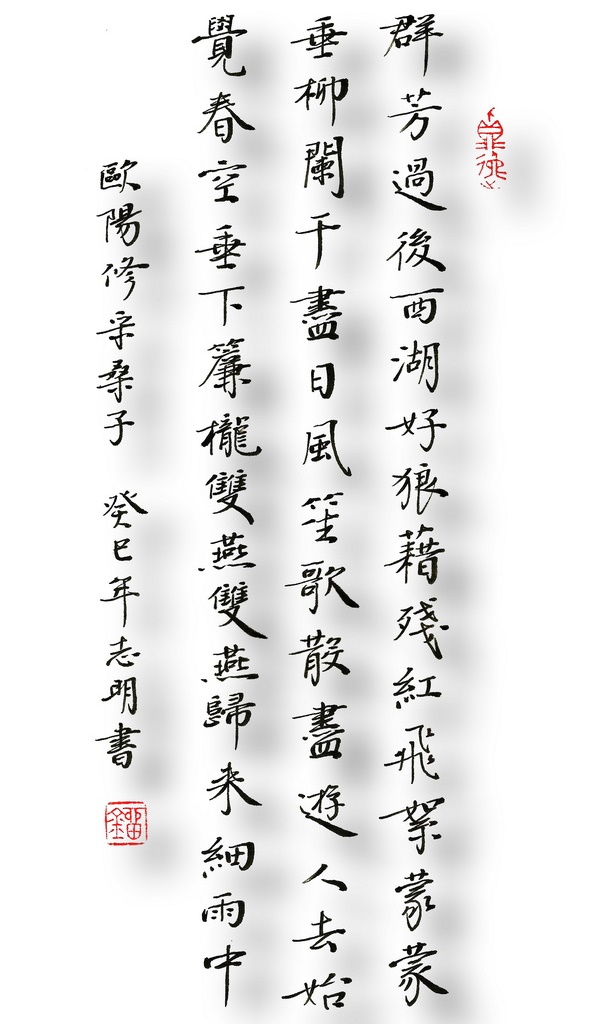 群芳過後西湖好狼藉殘紅飛絮蒙蒙
垂柳闌干盡日風笙歌散盡遊人去始
覺春空垂下簾櫳雙燕雙燕歸来細雨中
歐陽修采桑子 癸巳年志明書